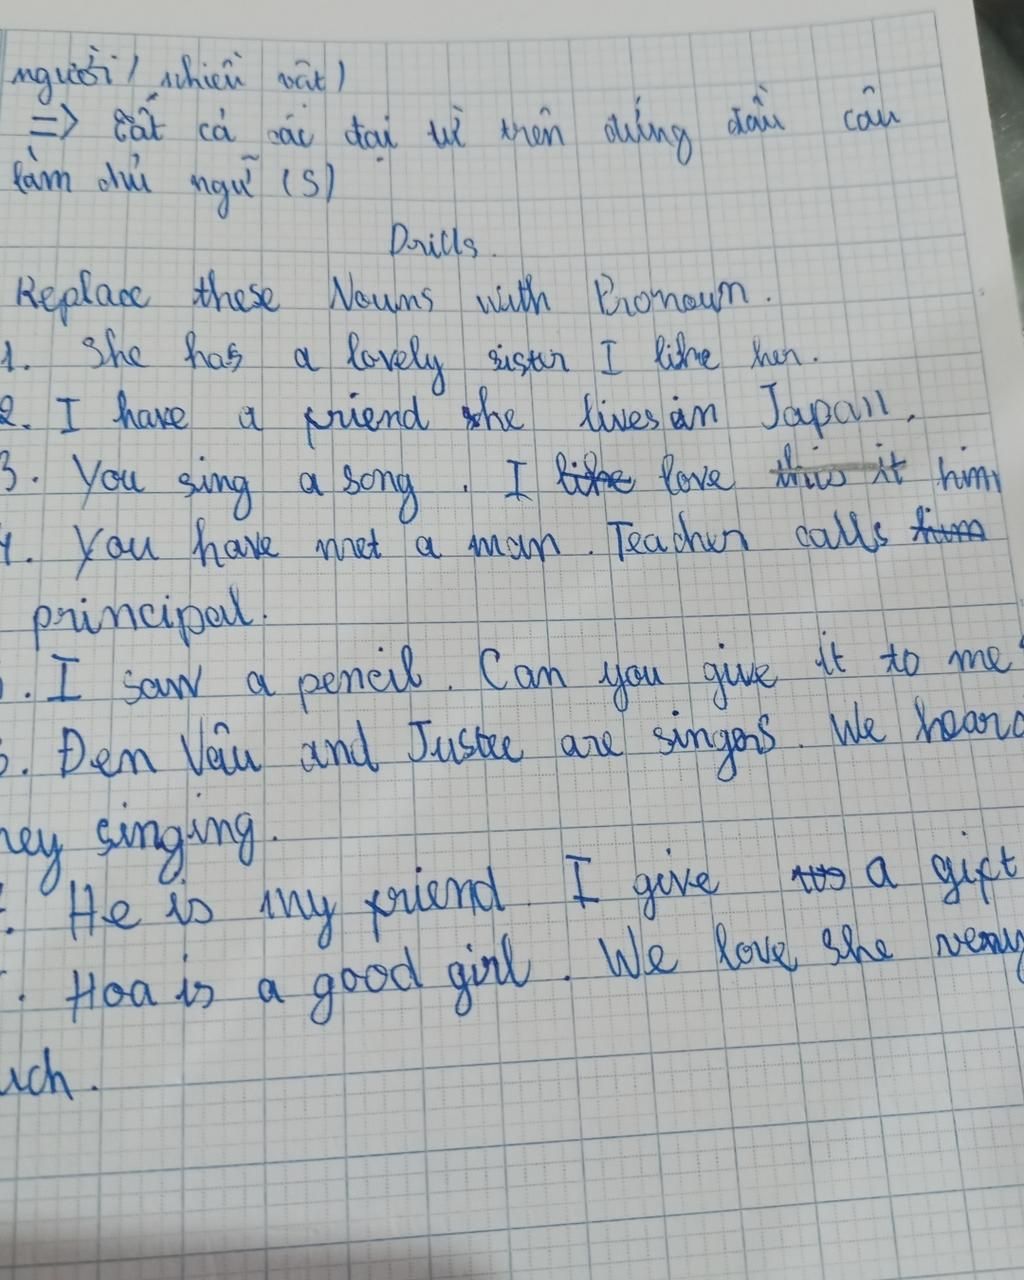 người / nhiều vật)
=> tất cả các đại từ trên đứng đầu câu
làm chủ ngữ (S)
Drills.
Replace these Nouns with Pronoun.
1. She has a lovely sister I like her.
2. I have a friend she lives in Japan.
3. You sing a song. I like love this it him
4. You have met a man. Teacher calls him
principal.
. I saw a pencil. Can you give it to me
. Đen Vâu and Justee are singers. We heard
hey singing.
. He is my friend I give a gift
. Hoa is a good girl. We love she very
uch.